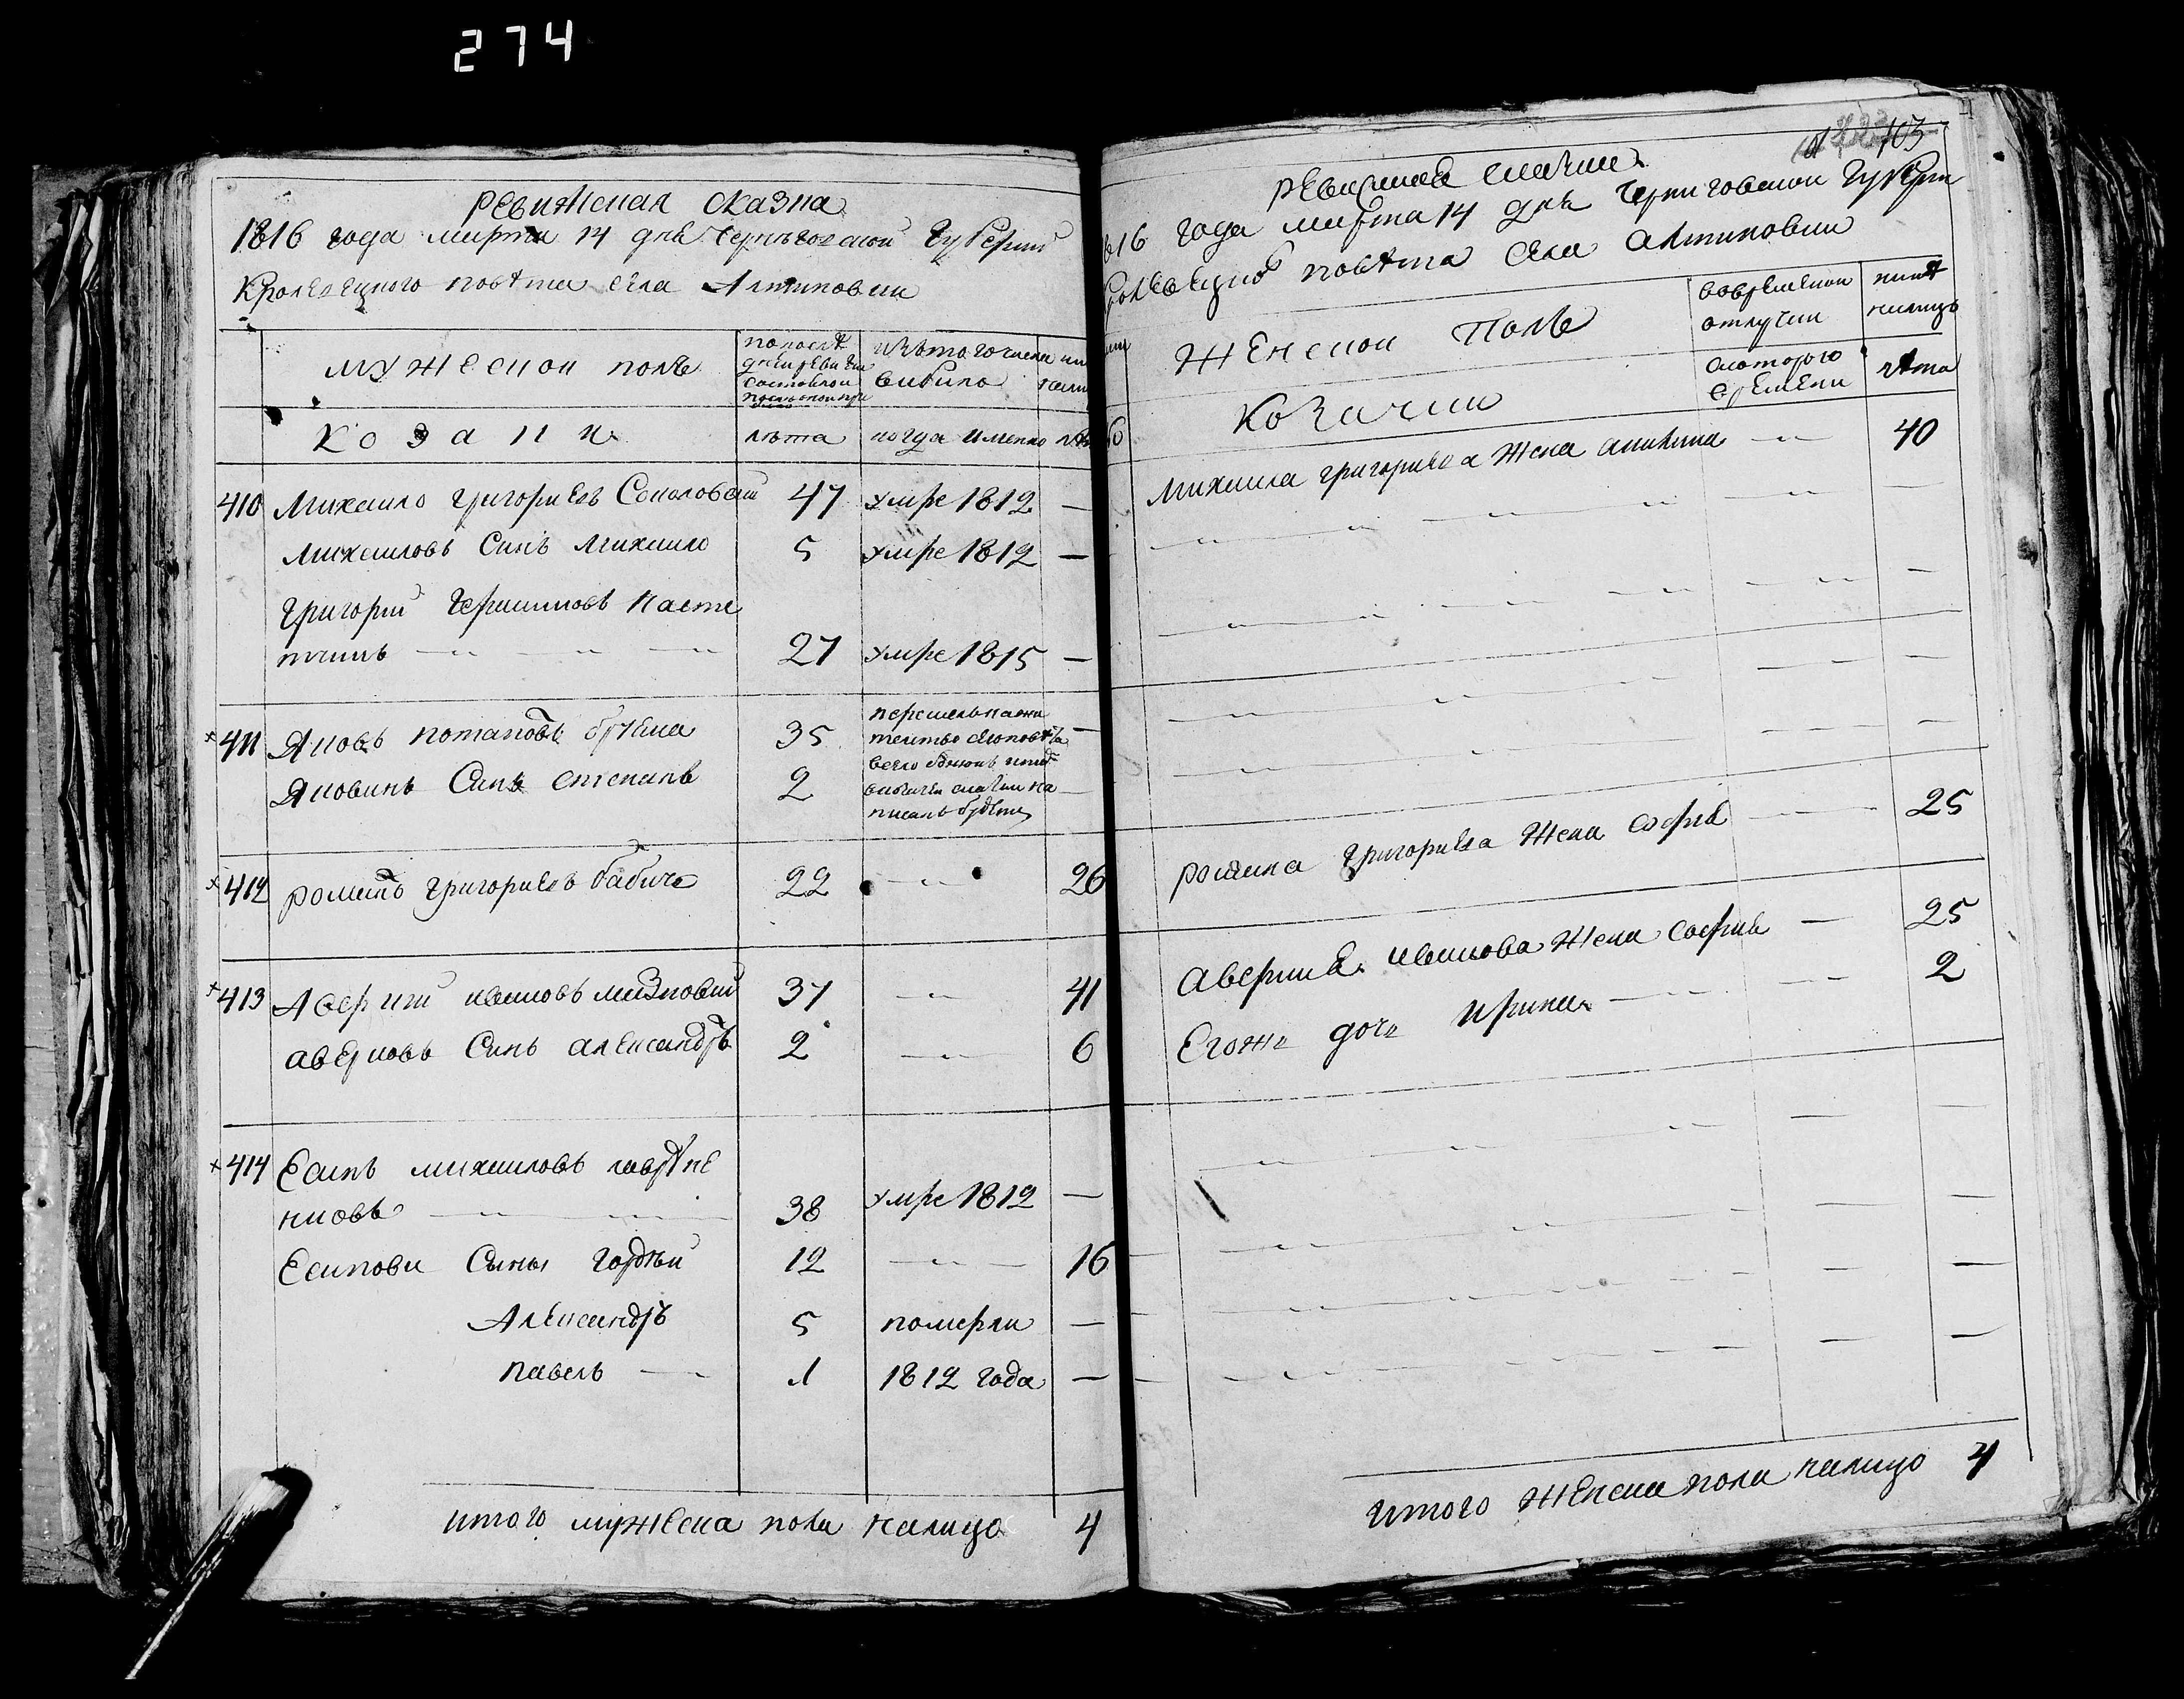 274
ревижская сказка
1816 года марта 14 дня Черниговской Губернии
Кролевецкого повѣта села Алтиновки
мужеской полъ
попослѣ
дней ревизии
состояло и
изъ того числа
выбило
Козаки
лѣта
когда именно
410 Михаило григориевъ Соколовский 47 умре 1812 —
Михаиловъ Синъ Михаило 5 умре 1812 —
Григорий Герасимовъ Касте
27 умре 1815 —
411 Яковъ потаповъ 35 —
Яковинъ Синъ степанъ 2 —
перешелъ на жи
тельство
писанъ будетъ
412 романъ григориевъ бабичъ 22 — 26
413 Аверкий ивановъ 37 — 41
аверковъ Синъ александръ 2 — 6
414 Есипъ михаиловъ лавре
ковъ 38 умре 1812 —
Есипови Сыны гордѣй 12 — 16
Александръ 5 померли —
павелъ — 1 1812 года —
итого мужеска пола налицо 4
103
ревижская скаски
1816 года марта 14 дня Черниговской Губерни
Кролевецко повѣта села Алтиновки
Женской Полъ
вовременной
отлучки
нинѣ
налицо
Козачки
скоторого
времени
лѣта
Михаила григориева жена акилина — 40
романа григориева жена софия — 25
аверкия ивановa жена софия — 25
Егожъ дочь ирина — 2
итого женска пола налицо 4